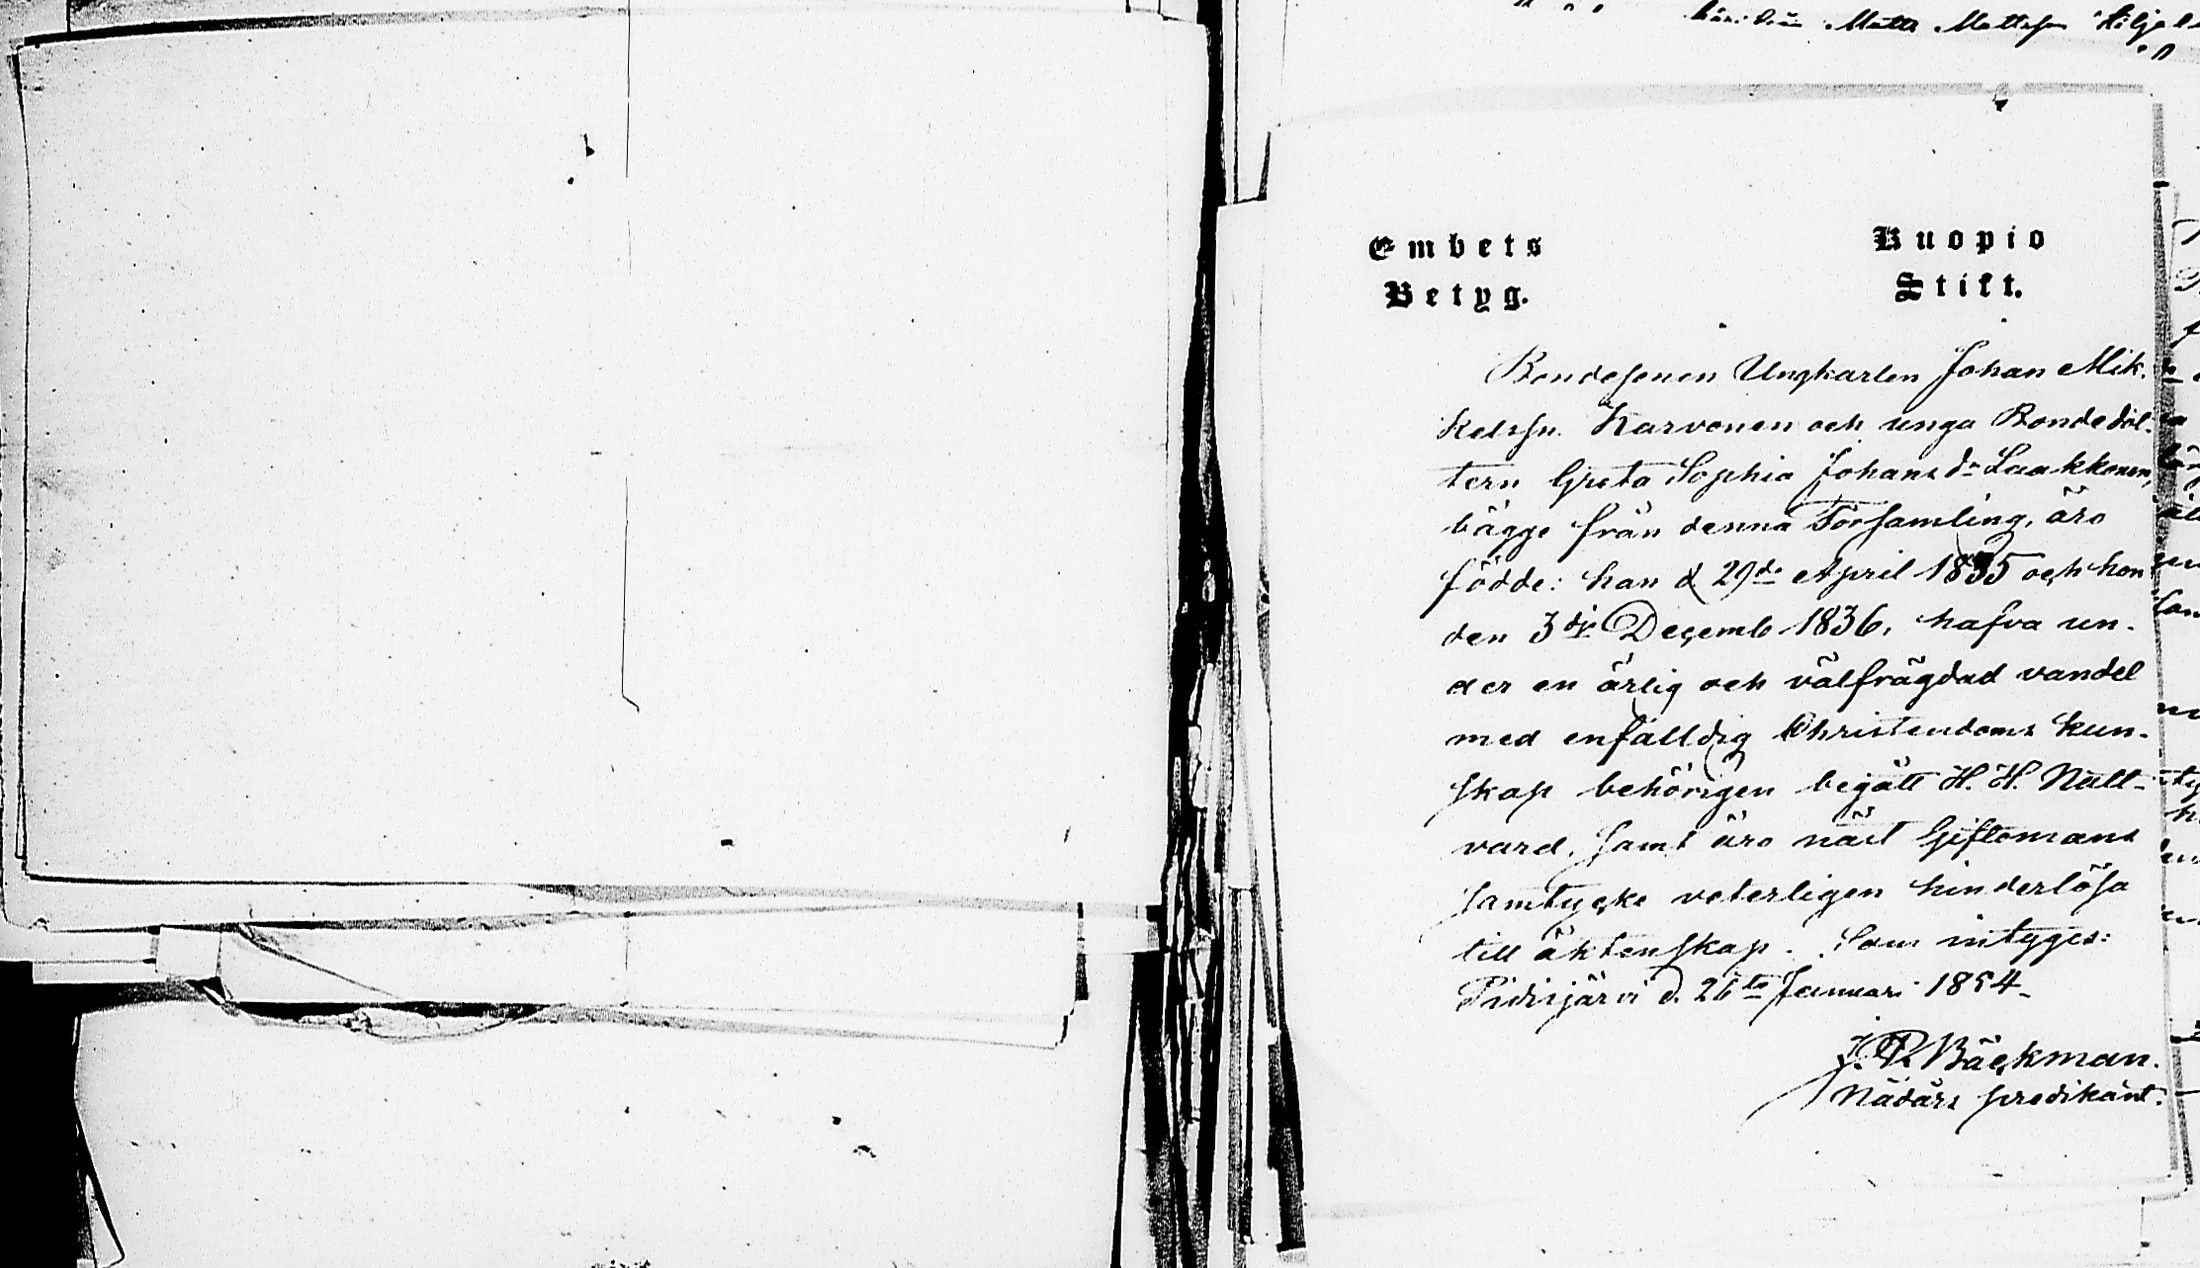 Matts Mattsson
Embets Kuopio
Betyg. Stift.
Bondesonen Ungkarlen Johan Mik-
kelssn. Karvonen och unga Bondedöt-
tern Greta Sophia Johansdr Laakkonen,
bägge från denna Församling, äro
födde: han d 29de April 1835 och hon
den 3dje Decemb 1836, hafva un-
der en ärlig och välfrägdad vandel
med enfälldig Christendoms kun-
skap behörigen begått H. H. Natt-
vard, samt äro näst Giftomans
samtycke veterligen hinderlösa
till äktenskap. Som intyges:
Pidisjärvi d. 26te Januari 1854.
J. R. Bäckman.
Nådårs predikant.